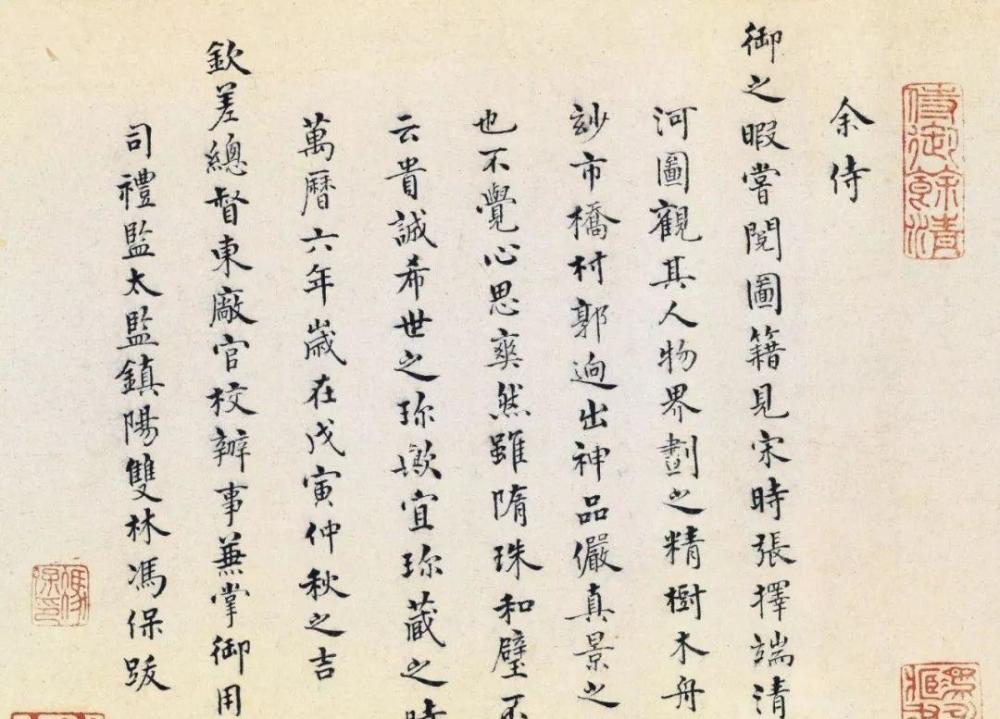 余侍
御之暇嘗閱圖籍見宋時張擇端清
河圖觀其人物界劃之精樹木舟
玅市橋村郭逈出神品儼真景之
也不覺心思爽然雖隋珠和璧不
云貴誠希世之珎歟宜珎藏之時
萬曆六年歲在戊寅仲秋之吉
欽差總督東廠官校辦事兼掌御用
司禮監太監鎮陽雙林馮保跋
侍御餘清